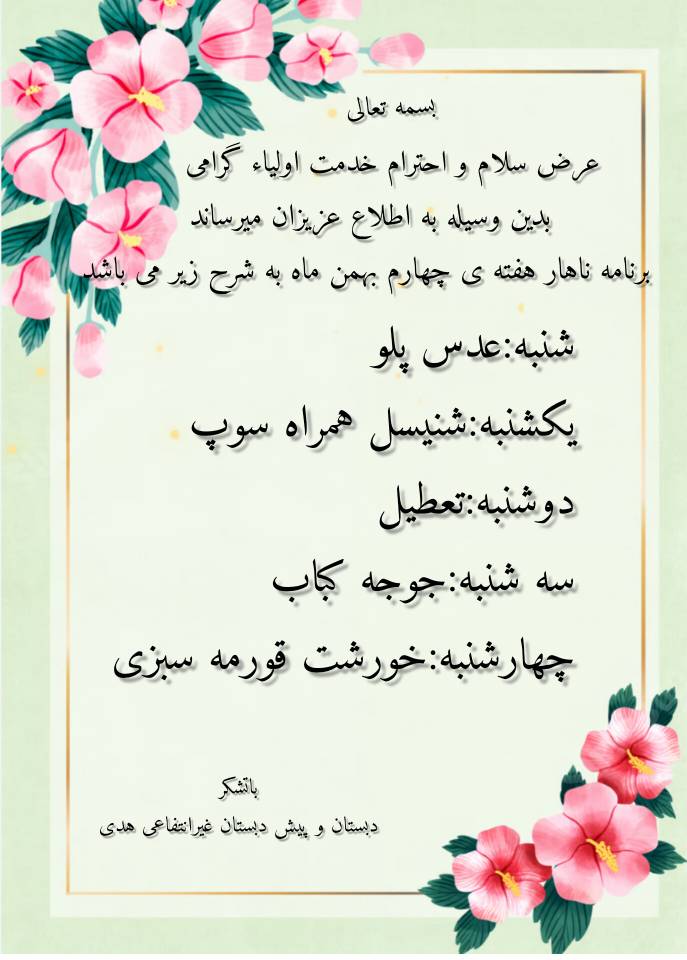 بسمه تعالی
عرض سلام و احترام خدمت اولیاء گرامی
بدین وسیله به اطلاع عزیزان میرساند
برنامه ناهار هفته ی چهارم بهمن ماه به شرح زیر می باشد
شنبه:عدس پلو
یکشنبه:شنیسل همراه سوپ
دوشنبه:تعطیل
سه شنبه:جوجه کباب
چهارشنبه:خورشت قورمه سبزی
باتشکر
دبستان و پیش دبستان غیرانتفاعی هدی